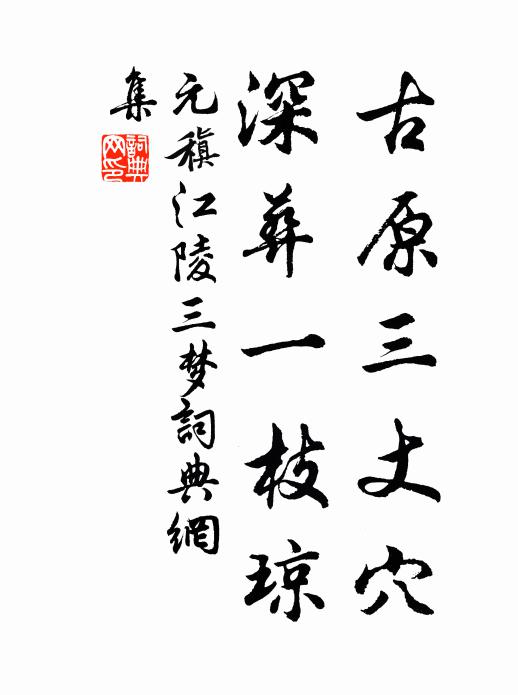 古原三丈穴
深葬一枝琼
元稹江陵三梦詞典網
集
詞典網印